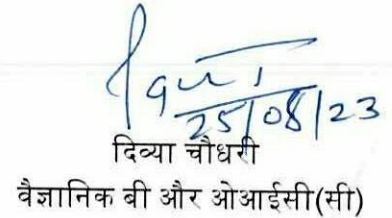 25/08/23
दिव्या चौधरी
वैज्ञानिक बी और ओआईसी(सी)